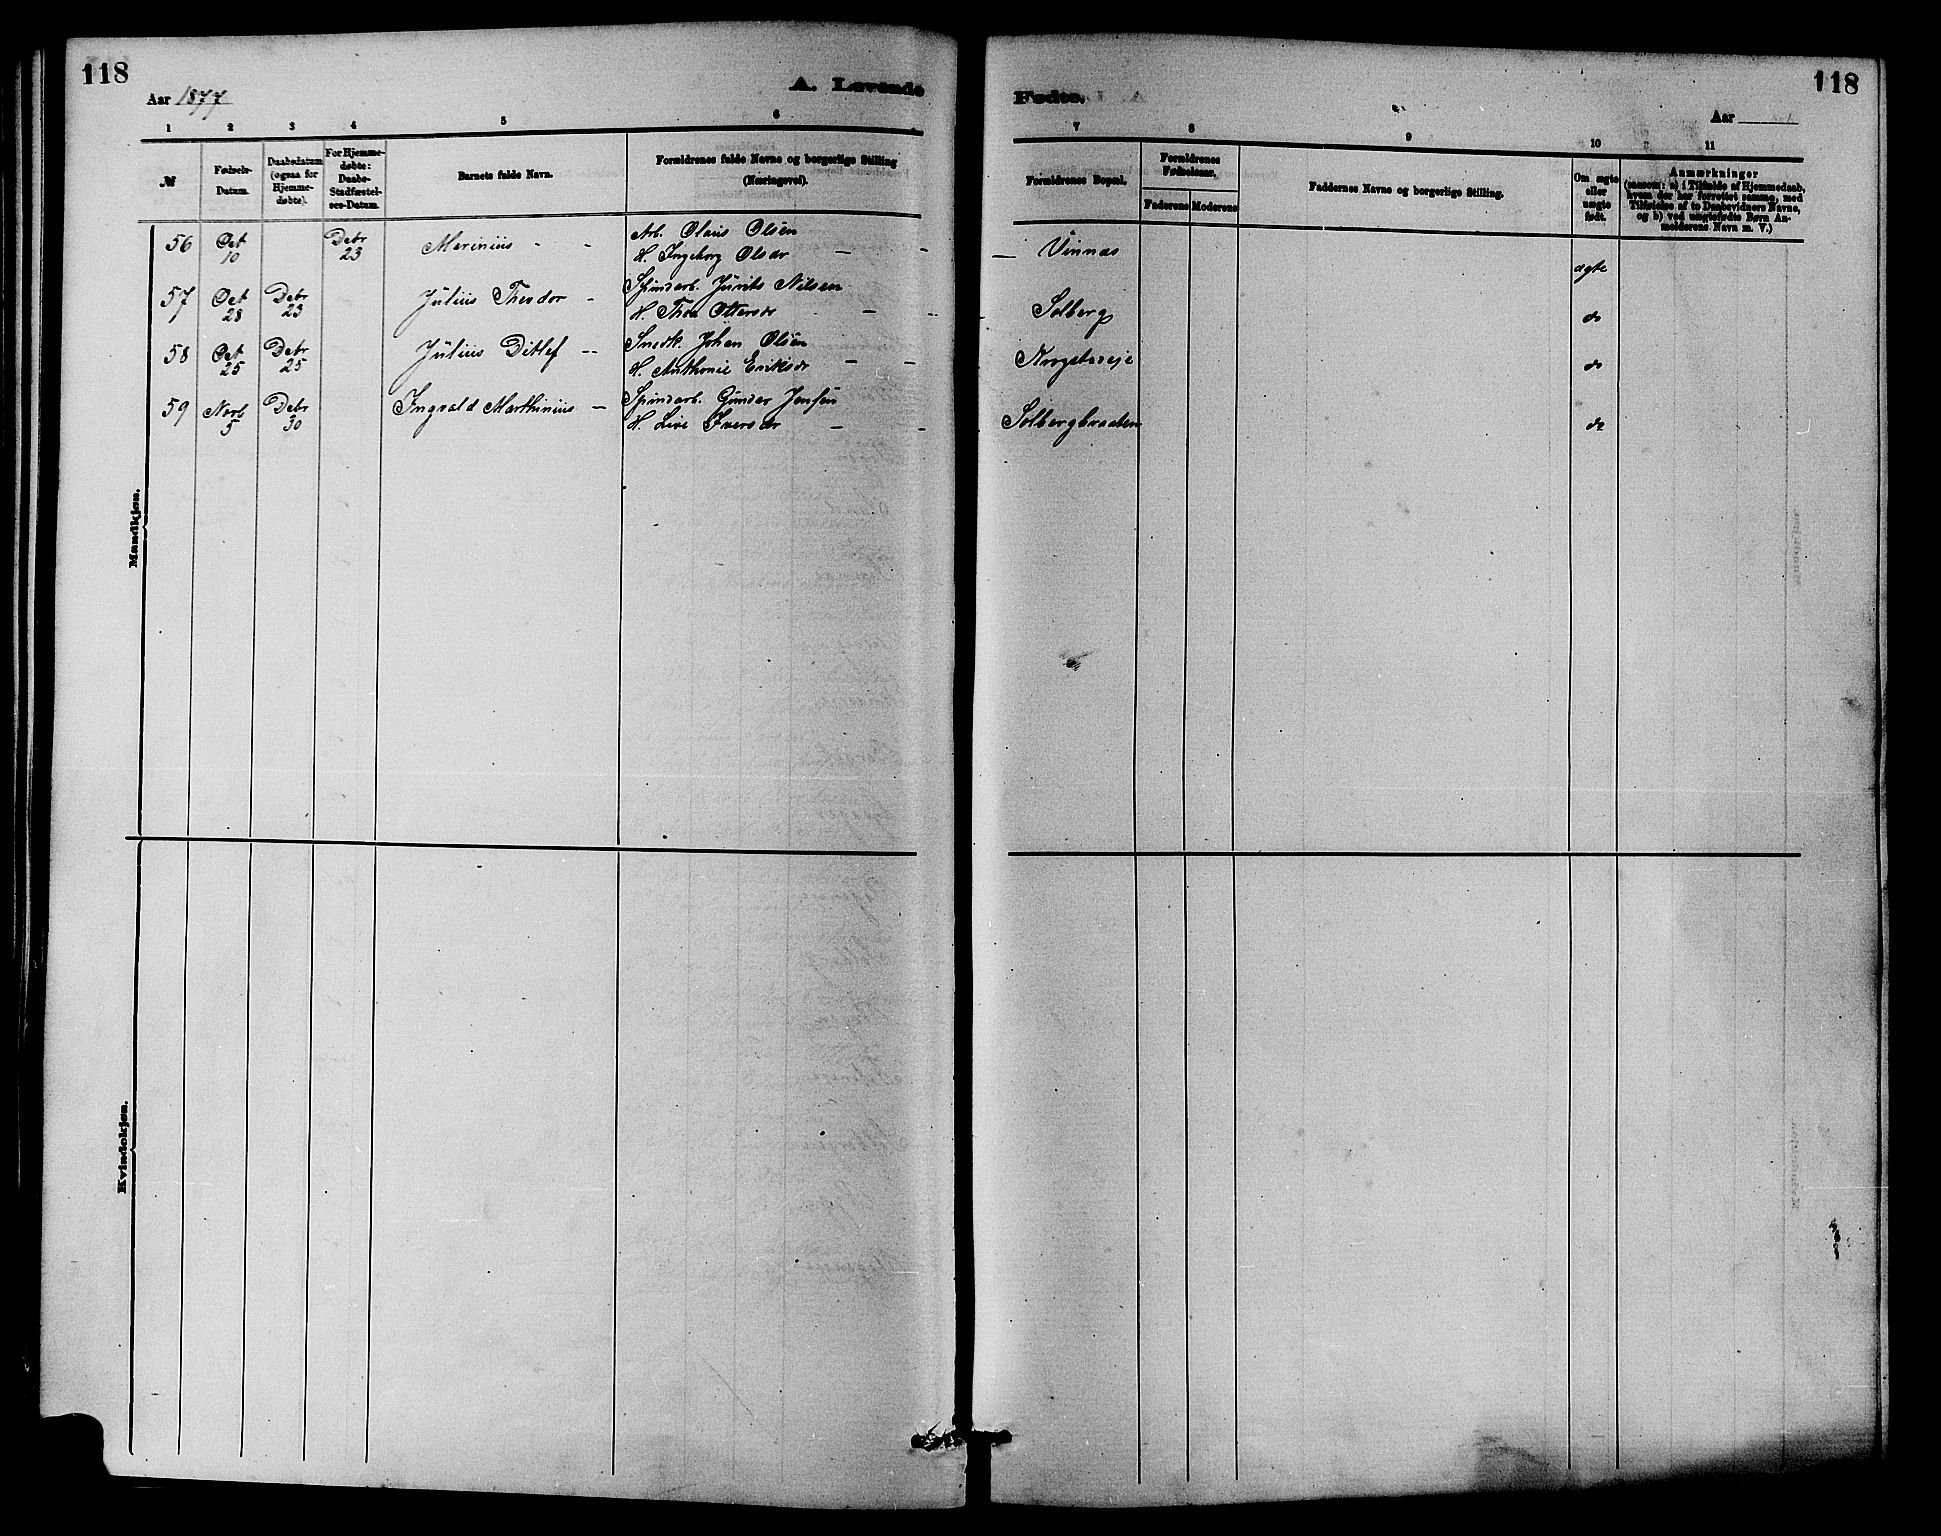 118
Aar 1877
A. Levende
1 2 3 4 5 6
№
Fødsels-
Datum.
Daabsdatum
(ogsaa for
Hjemme-
døbte).
For Hjemme-
døbte:
Daabs-
Stadfæstel-
ses-Datum.
Barnets fulde Navn.
Forældrenes fulde Navne og borgerlige Stilling
(Næringsvei).
Mandkjøn.
56 Oct 10 Debr 23 Marinius - - Arb. Olaus Olsen
H. Ingeborg Olsdr —
57 Oct 28 Debr 23 Julius Theodor - Spindarb. Jurits Nilsen
H. Thea Ottersdr - - -
58 Oct 25 Debr 25 Julius Ditlef -- Snedk. Johan Olsen
H. Anthonie Eriksdr - -
59 Novb 5 Debr 30 Ingvald Marthinius - Spindarb. Gunder Jensen
H. Live Iversdr - -
Kvindekjøn.
Fødte.
118
Aar
7 8 9 10 11
Forældrenes Bopæl.
Forældrenes
Fødselsaar.
Faderens Moderens
Faddernes Navne og borgerlige Stilling.
Om ægte
eller
uægte
født.
Anmærkninger
(saasom: a) i Tilfælde af Hjemmedaab,
hvem der har forrettet samme, med
Tilføielse af to Daabsvidners Navne,
og b) ved uægtefødte Børn An-
melderens Navn m. V.)
— Vinnæs ægte
Solberg do
Krogstadeje do
Solbergbraaten do